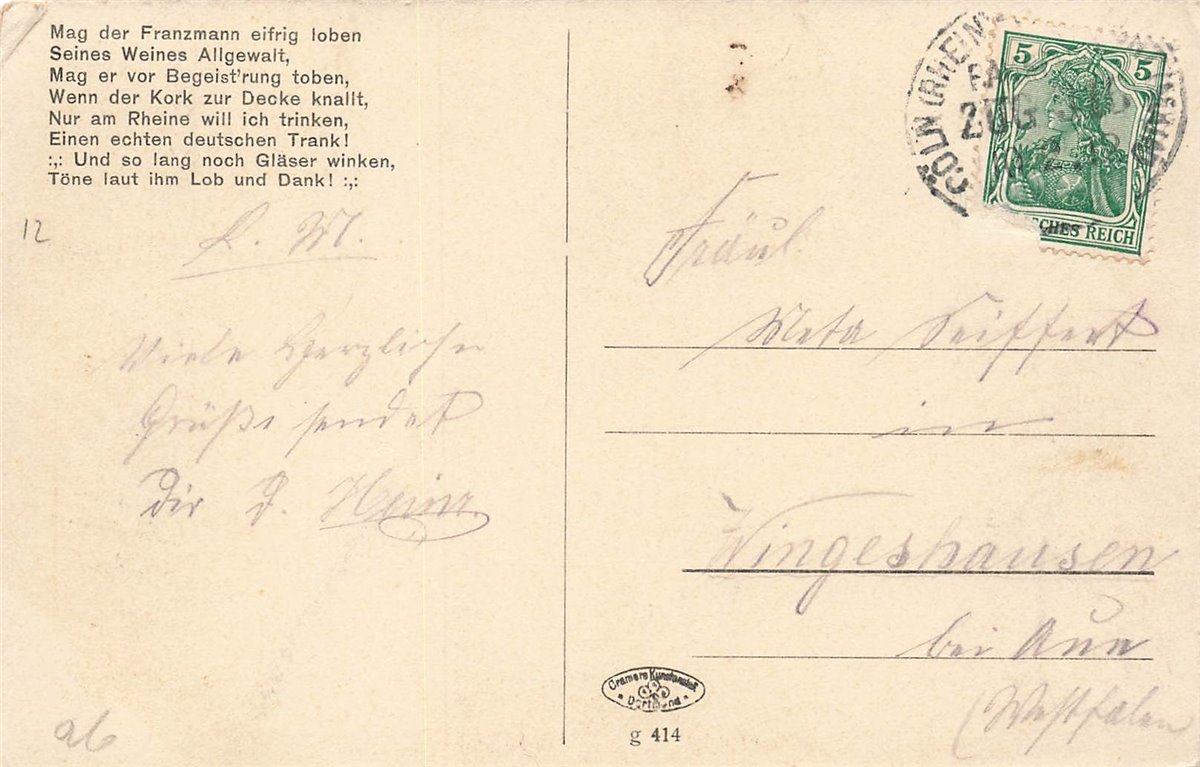 Mag der Franzmann eifrig loben
Seines Weines Allgewalt,
Mag er vor Begeist'rung toben,
Wenn der Kork zur Decke knallt,
Nur am Rheine will ich trinken,
Einen echten deutschen Trank!
:,: Und so lang noch Gläser winken,
Töne laut ihm Lob und Dank! :,:
12
L. M.
Viele Herzliche
Grüße sendet
Dir D. Heinr.
ab
CÖLN (RHEIN)
ZUG
5 5
SCHES REICH
Fräul
Meta Seiffert
in
Wingeshausen
bei Aue
(Westfalen
Cramers Kunstanstalt
Dortmund
g 414